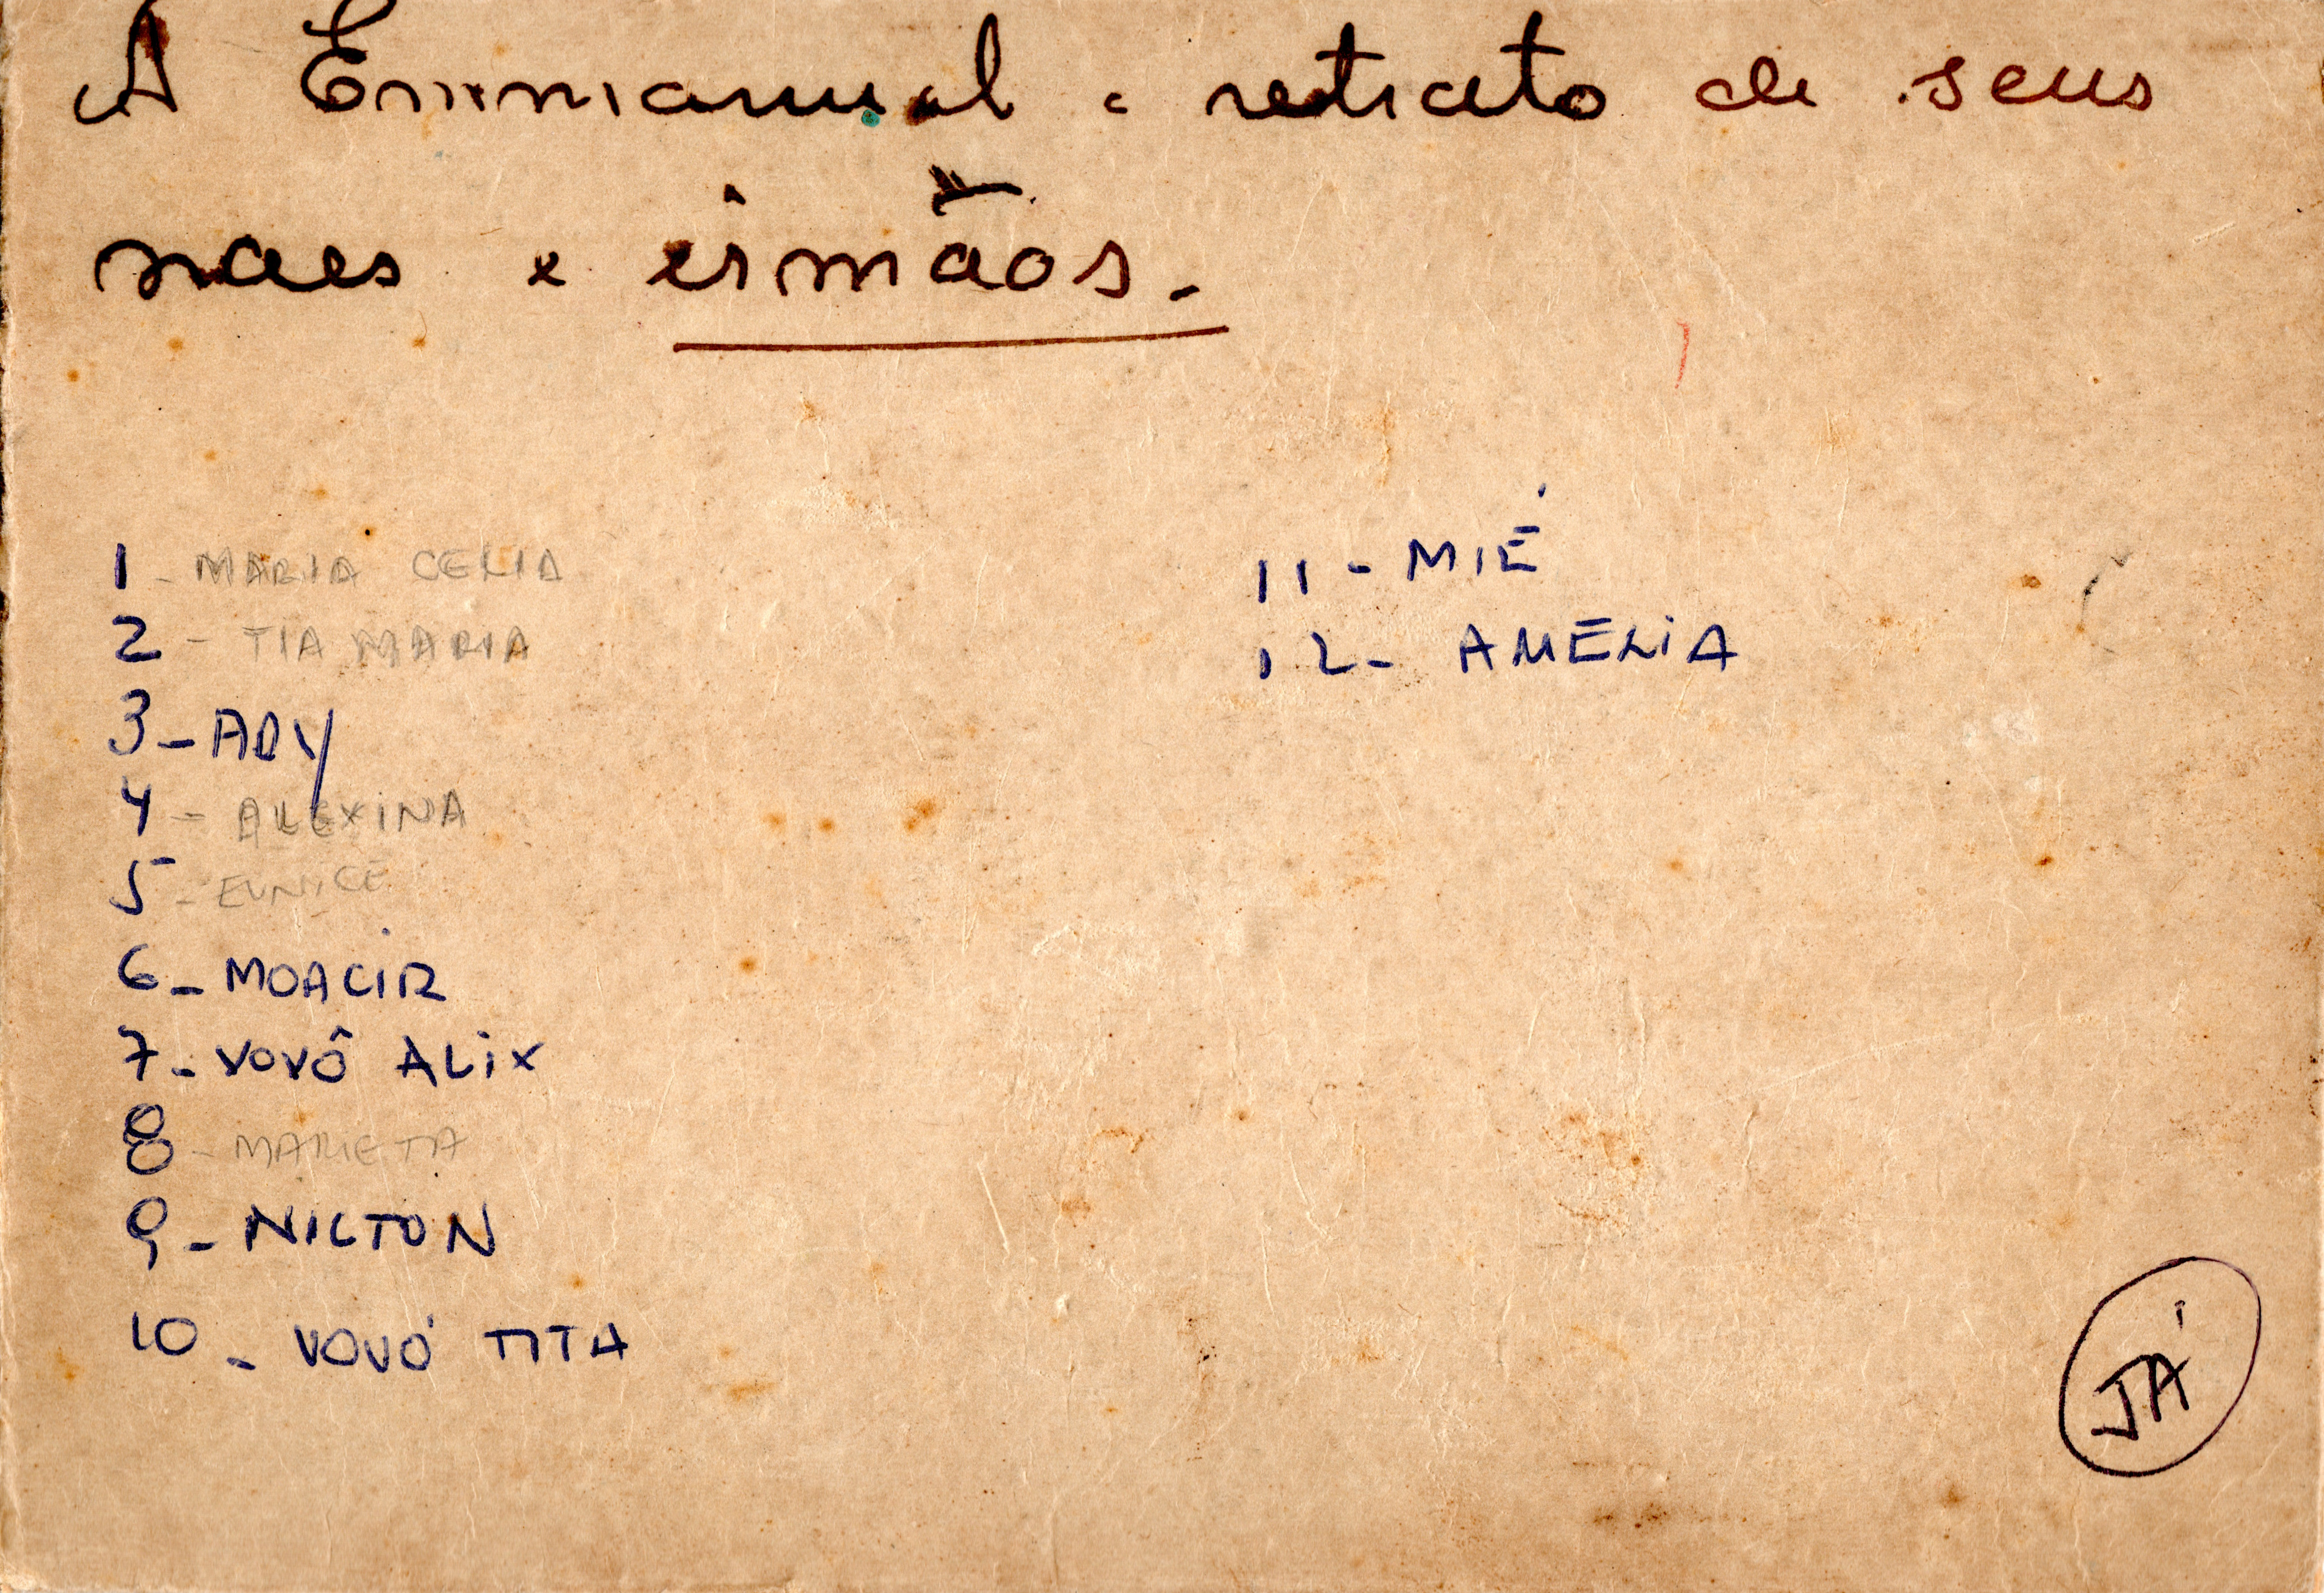 A Emmanuel o retrato de seus
paes e irmãos.
1 - MARIA CELIA
2 - TIA MARIA
3 - ARY
4 - ALEXINA
5 - EUNICE
6 - MOACIR
7 - VOVÔ ALIX
8 - MARIETA
9 - NILTON
10 - VOVÓ TITA
11 - MIÉ
12 - AMELIA
JÁ